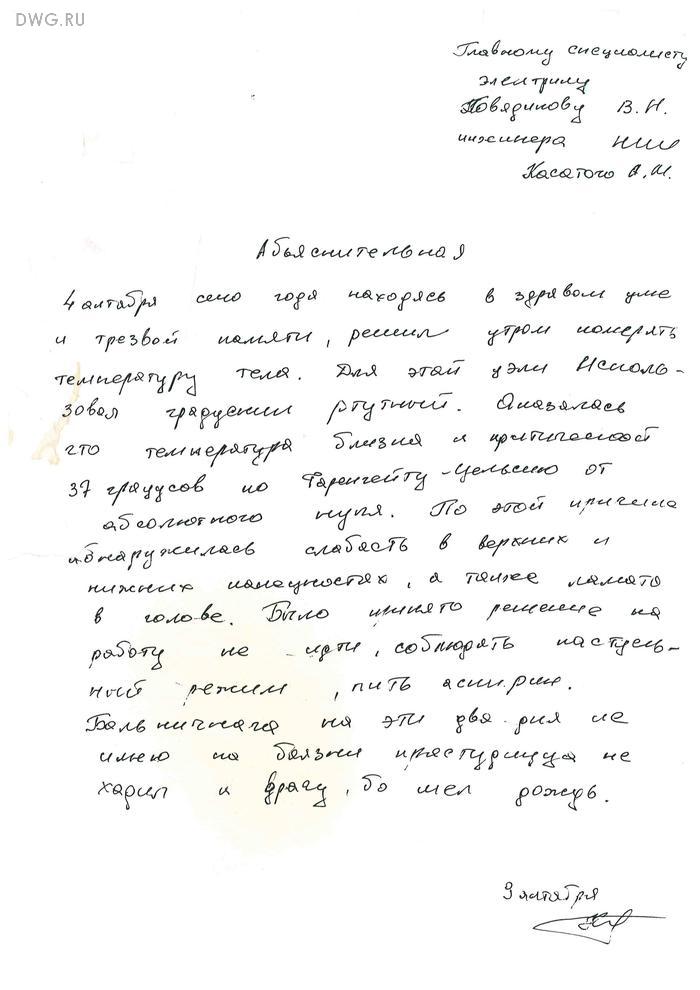 DWG.RU
Главному специалисту
электрику
Повядикову В.Н.
инжинера
Касатого А.И.
Абьяснительная
4 актября сего года находясь в здравом уме
и трезвой памяти, решил утром померять
температуру тела. Для этай цэли Исполь-
зовал градусник ртутный. Оказалась
что температура близка к критической
37 градусов по Фаренгейту-Цельсию от
абсолютного нуля. По этой причине
абнаружилась слабасть в верхних и
нижних канецностях, а также ламато
в голове. Было принято решение на
работу не идти, соблюдять пастель-
ный режим, пить аспирин.
Бальничнага на эти два дня не
имею па баязни прастудицца не
харил к врачу, бо шел дождь.
9 актября